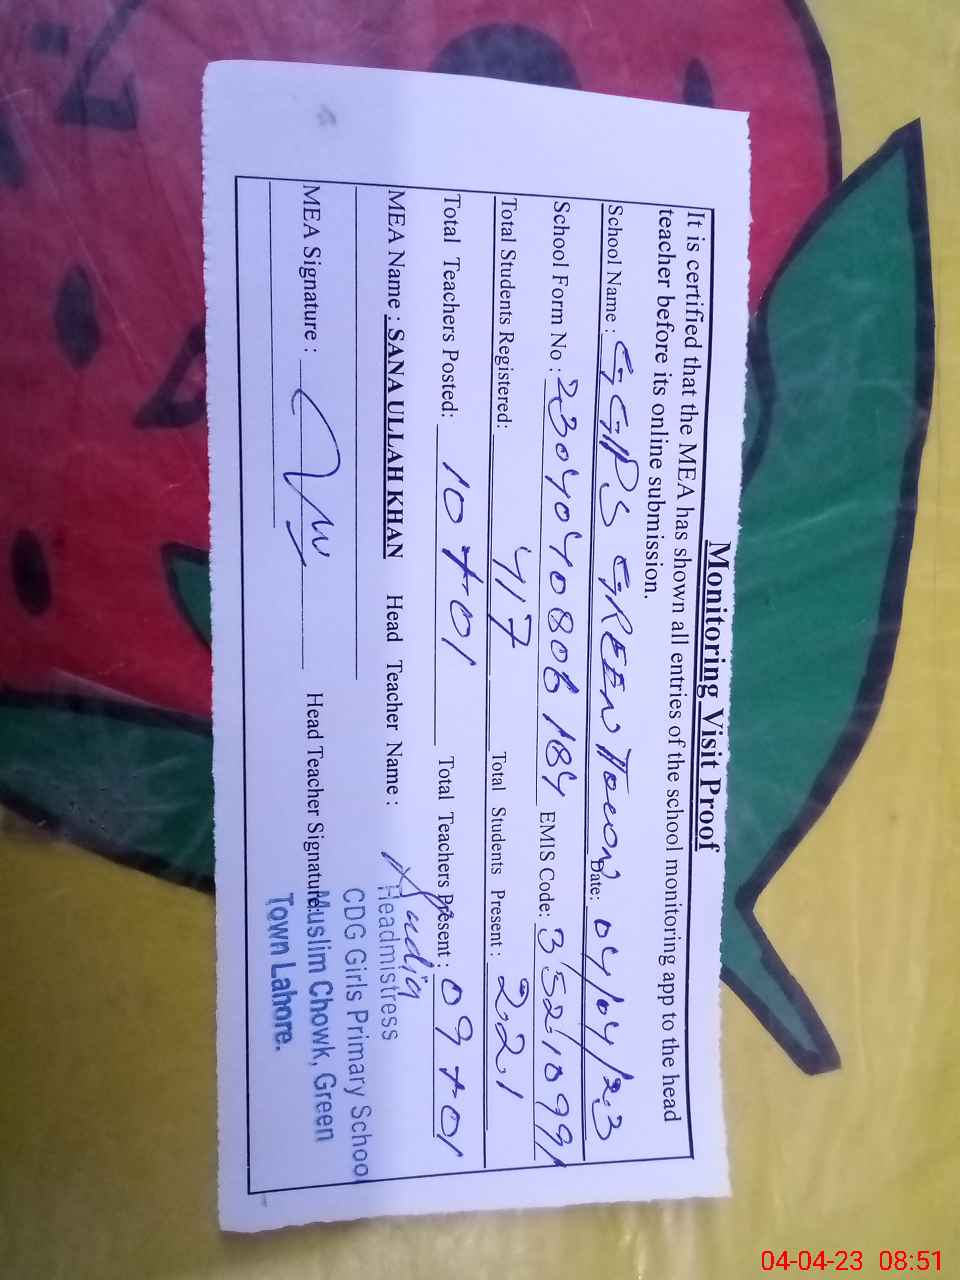 Monitoring Visit Proof
It is certified that the MEA has shown all entries of the school monitoring app to the head
teacher before its online submission.
School Name : GGPS GREEN Town Date: 04/04/23
School Form No : 2304040806184 EMIS Code: 35210991
Total Students Registered: 417 Total Students Present : 221
Total Teachers Posted: 10+01 Total Teachers Present : 09+01
MEA Name : SANA ULLAH KHAN Head Teacher Name : Sadia
Headmistress
CDG Girls Primary Schoo
MEA Signature : Head Teacher Signature: Muslim Chowk, Green
Town Lahore.
04-04-23 08:51